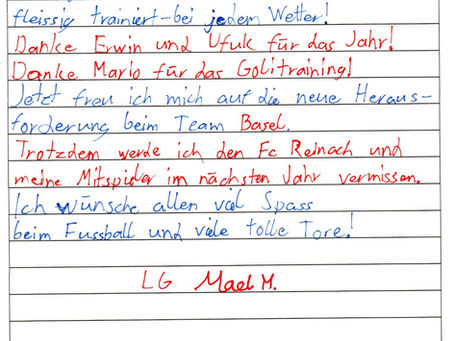 fleissig trainiert - bei jedem Wetter!
Danke Erwin und Ufuk für das Jahr!
Danke Mario für das Golitraining!
Jetzt freu ich mich auf die neue Heraus-
forderung beim Team Basel.
Trotzdem werde ich den Fc Reinach und
meine Mitspieler im nächsten Jahr vermissen.
Ich wünsche allen viel Spass
beim Fussball und viele tolle Tore!
LG Mael M.